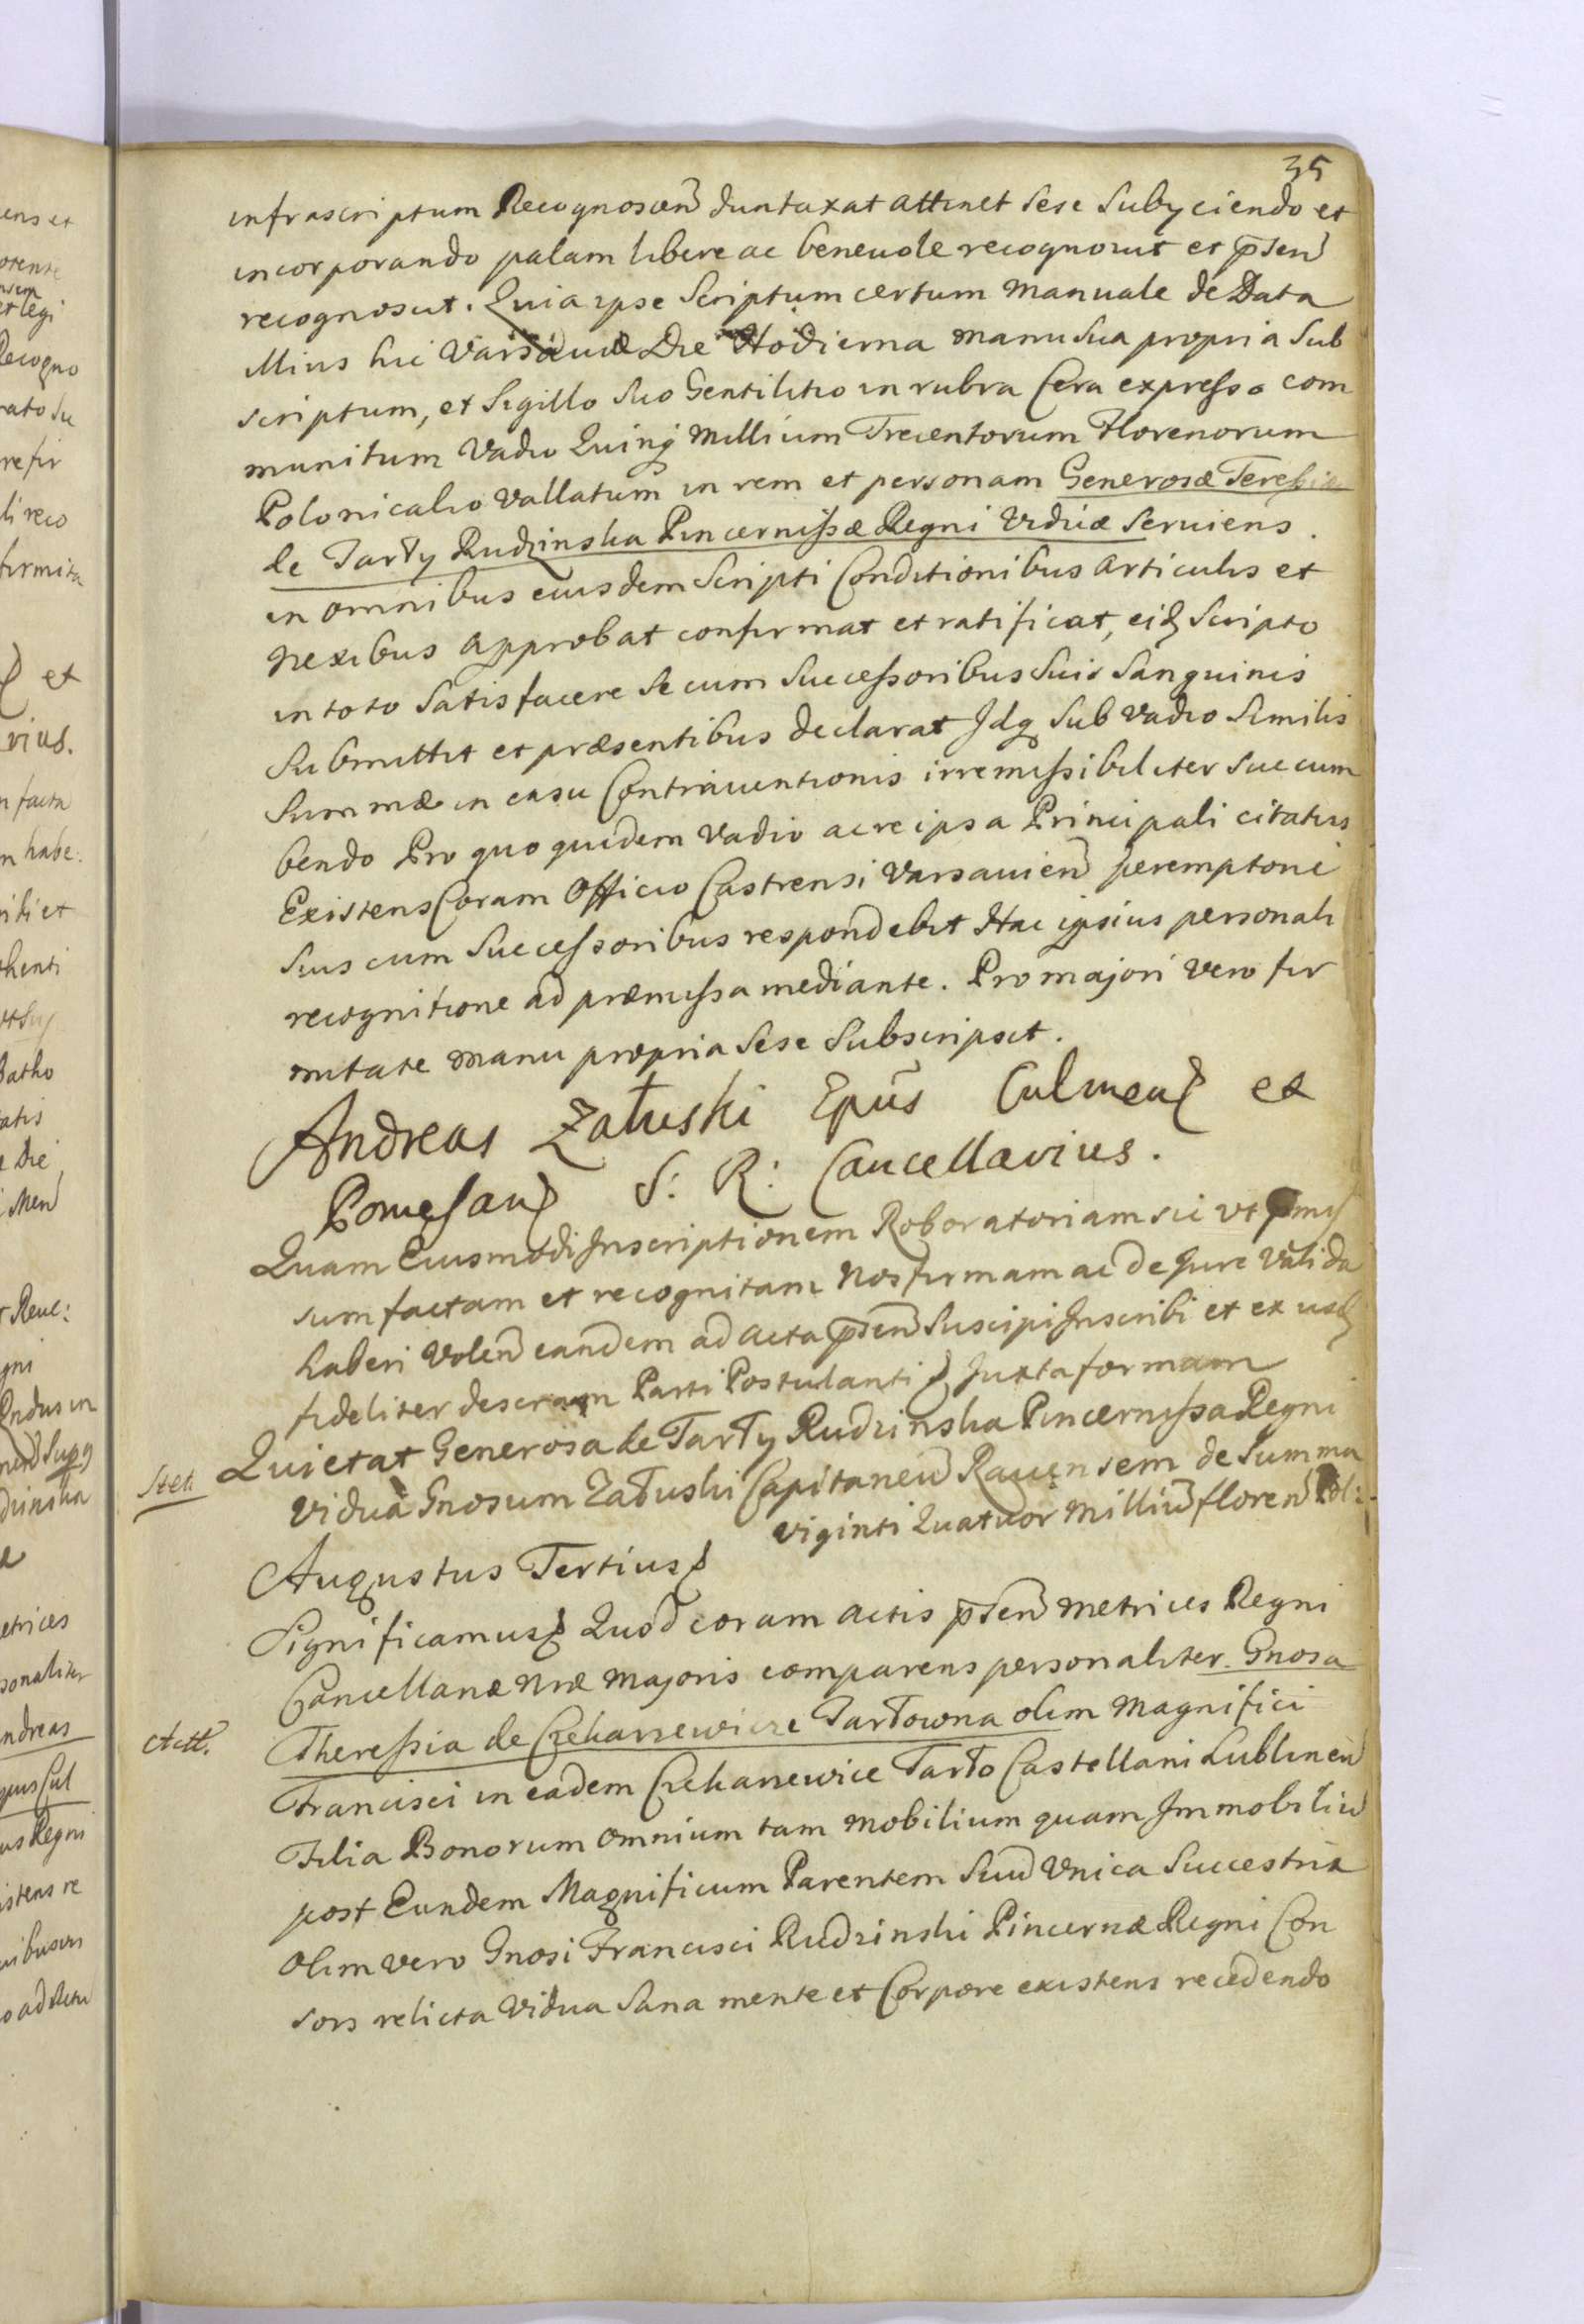 35
infrascriptum Recognoscen duntaxat attinet sese subyciendo et
incorporando palam libere ac beneuole recognouit et p̄sen
recognoscit. Quia ipse Scriptum certum Manuale de Data
Illius hic Varsauiæ Die Hodierna manu sua propria sub
scriptum, et Sigillo suo Gentilitio in rubra Cera expresso com
munitum Vadio Quinq Millium Trecentorum Florenorum
Polonicaliū Vallatum in rem et personam Generosæ Teressiæ
de Tarły Rudzinska Pincernissæ Regni Viduæ seruiens.
in omnibus eiusdem Scripti Conditionibus articulis et
nexibus approbat confirmat et ratificat, eidq Scripto
in toto satisfacere se cum Successoribus suis sanguinis
submittit et præsentibus declarat Idq sub vadio similis
Summæ in casu Contrauentionis irremissibiliter succum
bendo Pro quo quidem Vadio ac re ipsa Principali citatus
Existens Coram Officio Castrensi Varsauien peremptorie
suis cum Successoribus respondebit Hac ipsius personali
recognitione ad præmissa mediante. Pro majori vero fir
mitate manu propria sese subscripsit.
Andreas Załuski Epūs Culmen et
Pomesan S: R: Cancellarius.
Quam Eiusmodi Inscriptionem Roboratoriam sic vt pmis
sum factam et recognitam Nos firmam ac de Jure Valida
haberi volen eandem ad acta p̄sen suscipi Inscribi et ex usdq
fideliter describi Parti Postulanti Juxta formam
Stet. Quietat Generosa de Tarły Rudzinska Pincernissa Regni
Vidua Gnosum Załuski Capitaneū Rauensem de Summa
viginti Quatuor Milliū floren Pol:
Augustus Tertius
Significamus Quod coram actis p̄sen Metrices Regni
Cancellariæ Nræ Majoris comparens personaliter Gnosa
Actt. Theressia de Czekarzewice Tarłowna olim Magnifici
Francisci in eadem Czekarzewice Tarło Castellani Lublinen
Filia Bonorum omnium tam Mobilium quam Immobiliū
post Eundem Magnificum Parentem Suū Vnica Successtrix
Olim vero Gnosi Francisci Rudzinski Pincernæ Regni Con
sors relicta Vidua Sana mente et Corpore existens recedendo